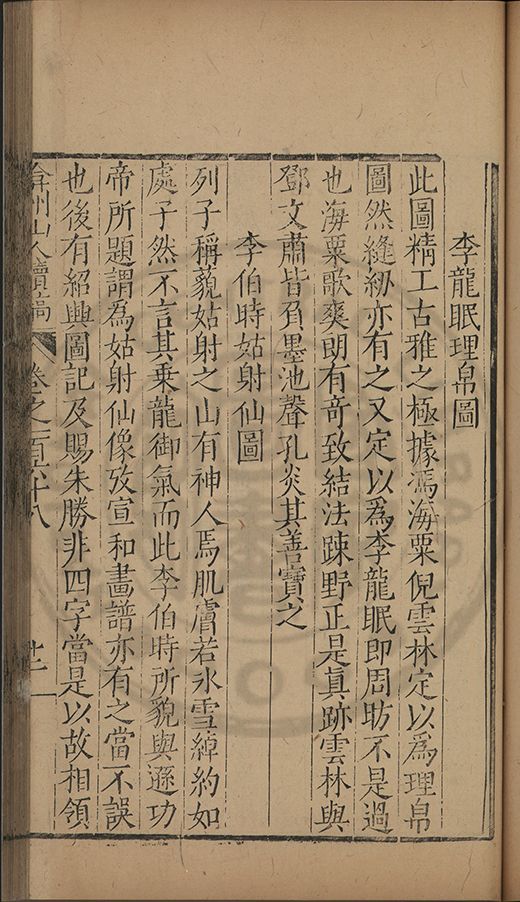 李龍眠理帛圖
此圖精工古雅之極據馮海粟倪雲林定以爲理帛
圖然縫紉亦有之又定以爲李龍眠即周昉不是過
也海粟歌爽朗有奇致結法踈野正是眞跡雲林與
鄧文肅皆負墨池聲孔炎其善寶之
李伯時姑射仙圖
列子稱藐姑射之山有神人焉肌膚若氷雪綽約如
處子然不言其乗龍御氣而此李伯時所貌與遜功
帝所題謂爲姑射仙像攷宣和畫譜亦有之當不誤
也後有紹興圖記及賜朱勝非四字當是以故相領
弇州山人續稿 卷之一百六十八 十二